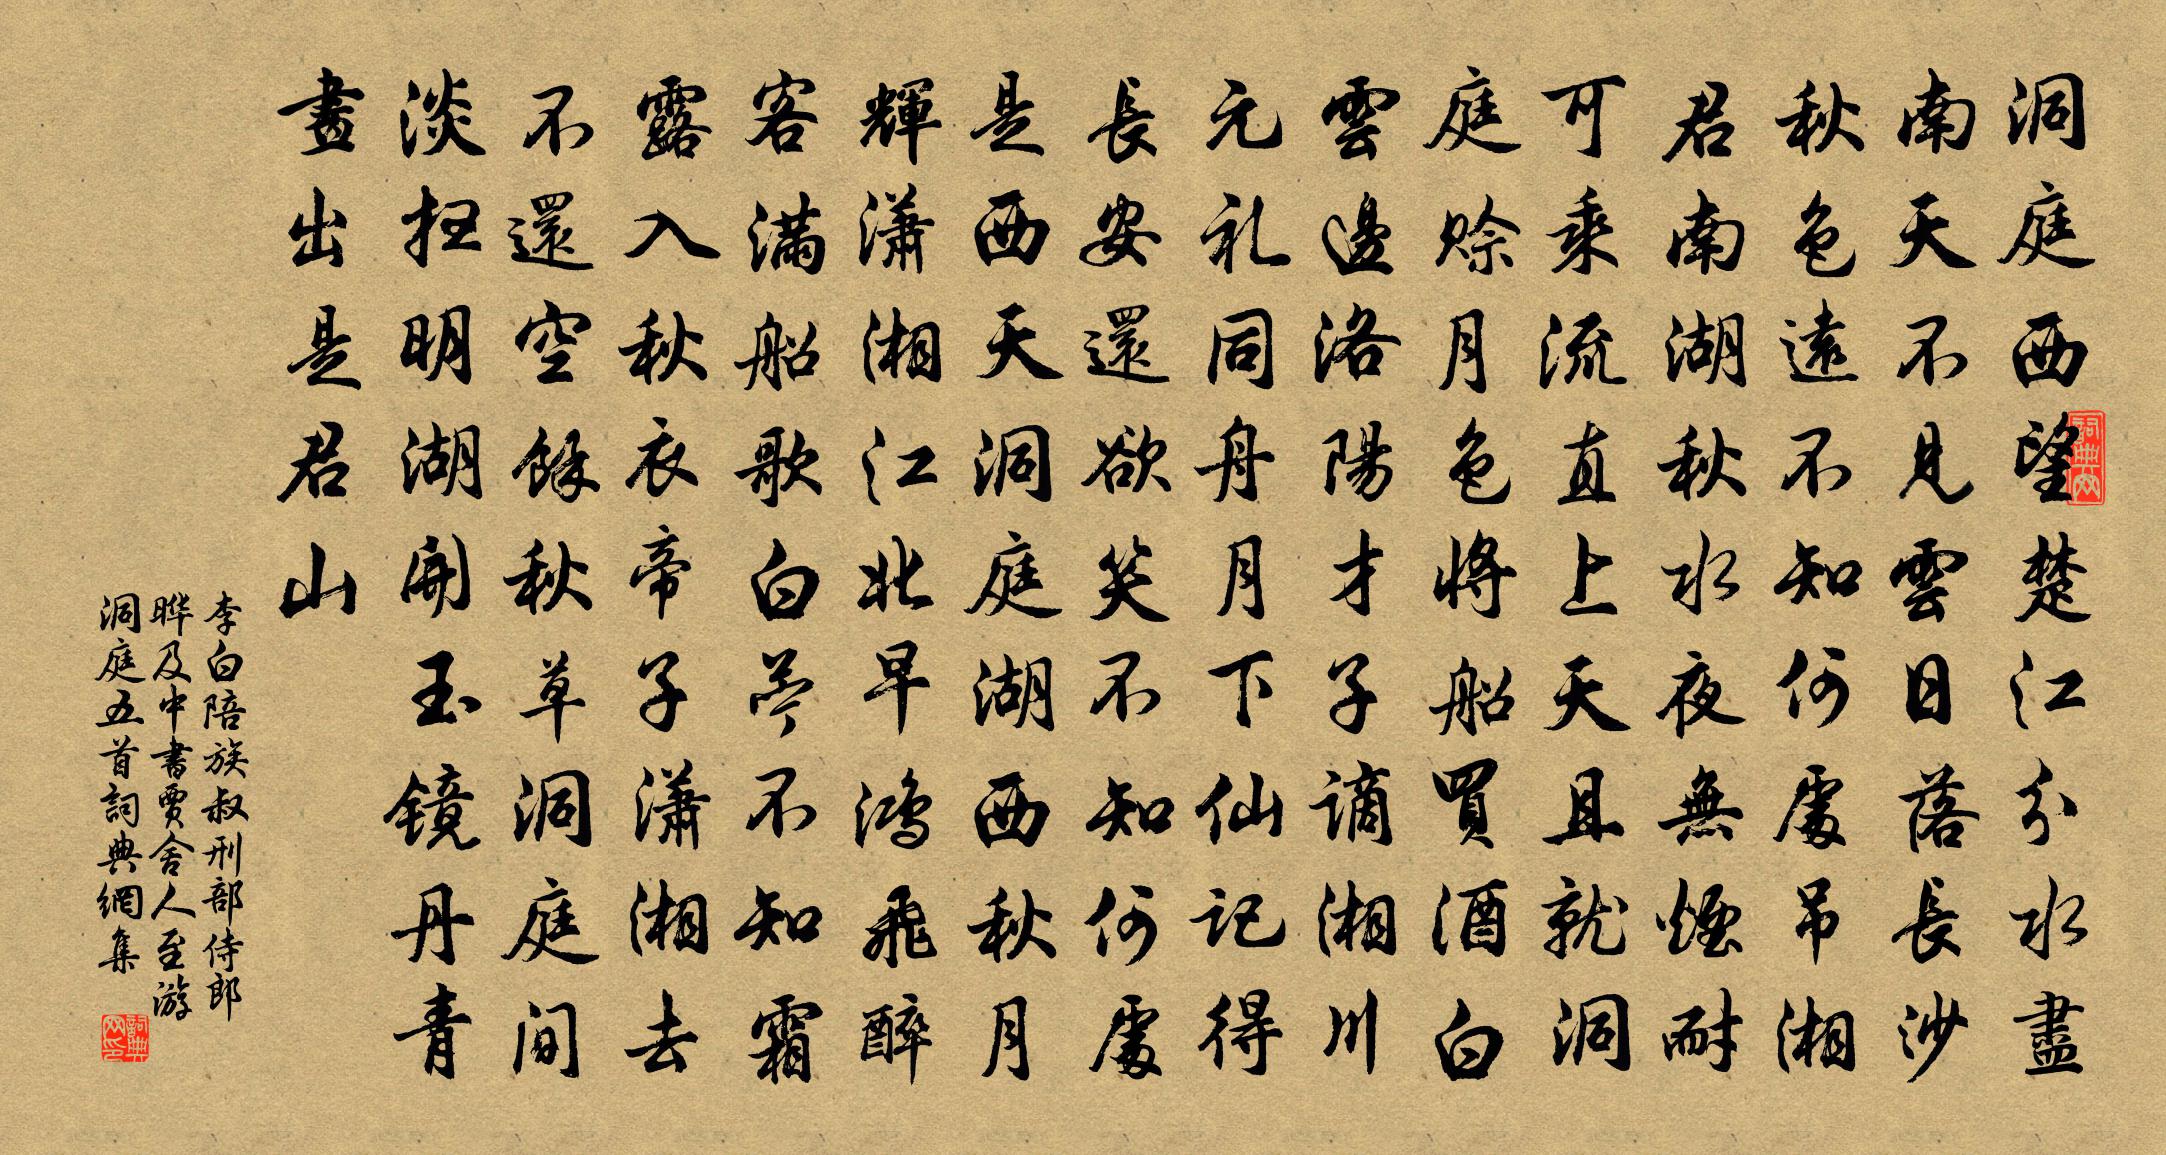 洞庭西望楚江分水盡
南天不見雲日落長沙
秋色遠不知何處吊湘
君南湖秋水夜無煙耐
可乘流直上天且就洞
庭賒月色將船買酒白
雲邊洛陽才子謫湘川
元礼同舟月下仙記得
長安還欲笑不知何處
是西天洞庭湖西秋月
輝潇湘江北早鴻飛醉
客滿船歌白苧不知霜
露入秋衣帝子潇湘去
不還空餘秋草洞庭間
淡扫明湖開玉镜丹青
畫出是君山
李白陪族叔刑部侍郎
晔及中書賈舍人至游
洞庭五首詞典網集
詞典网
詞典网印